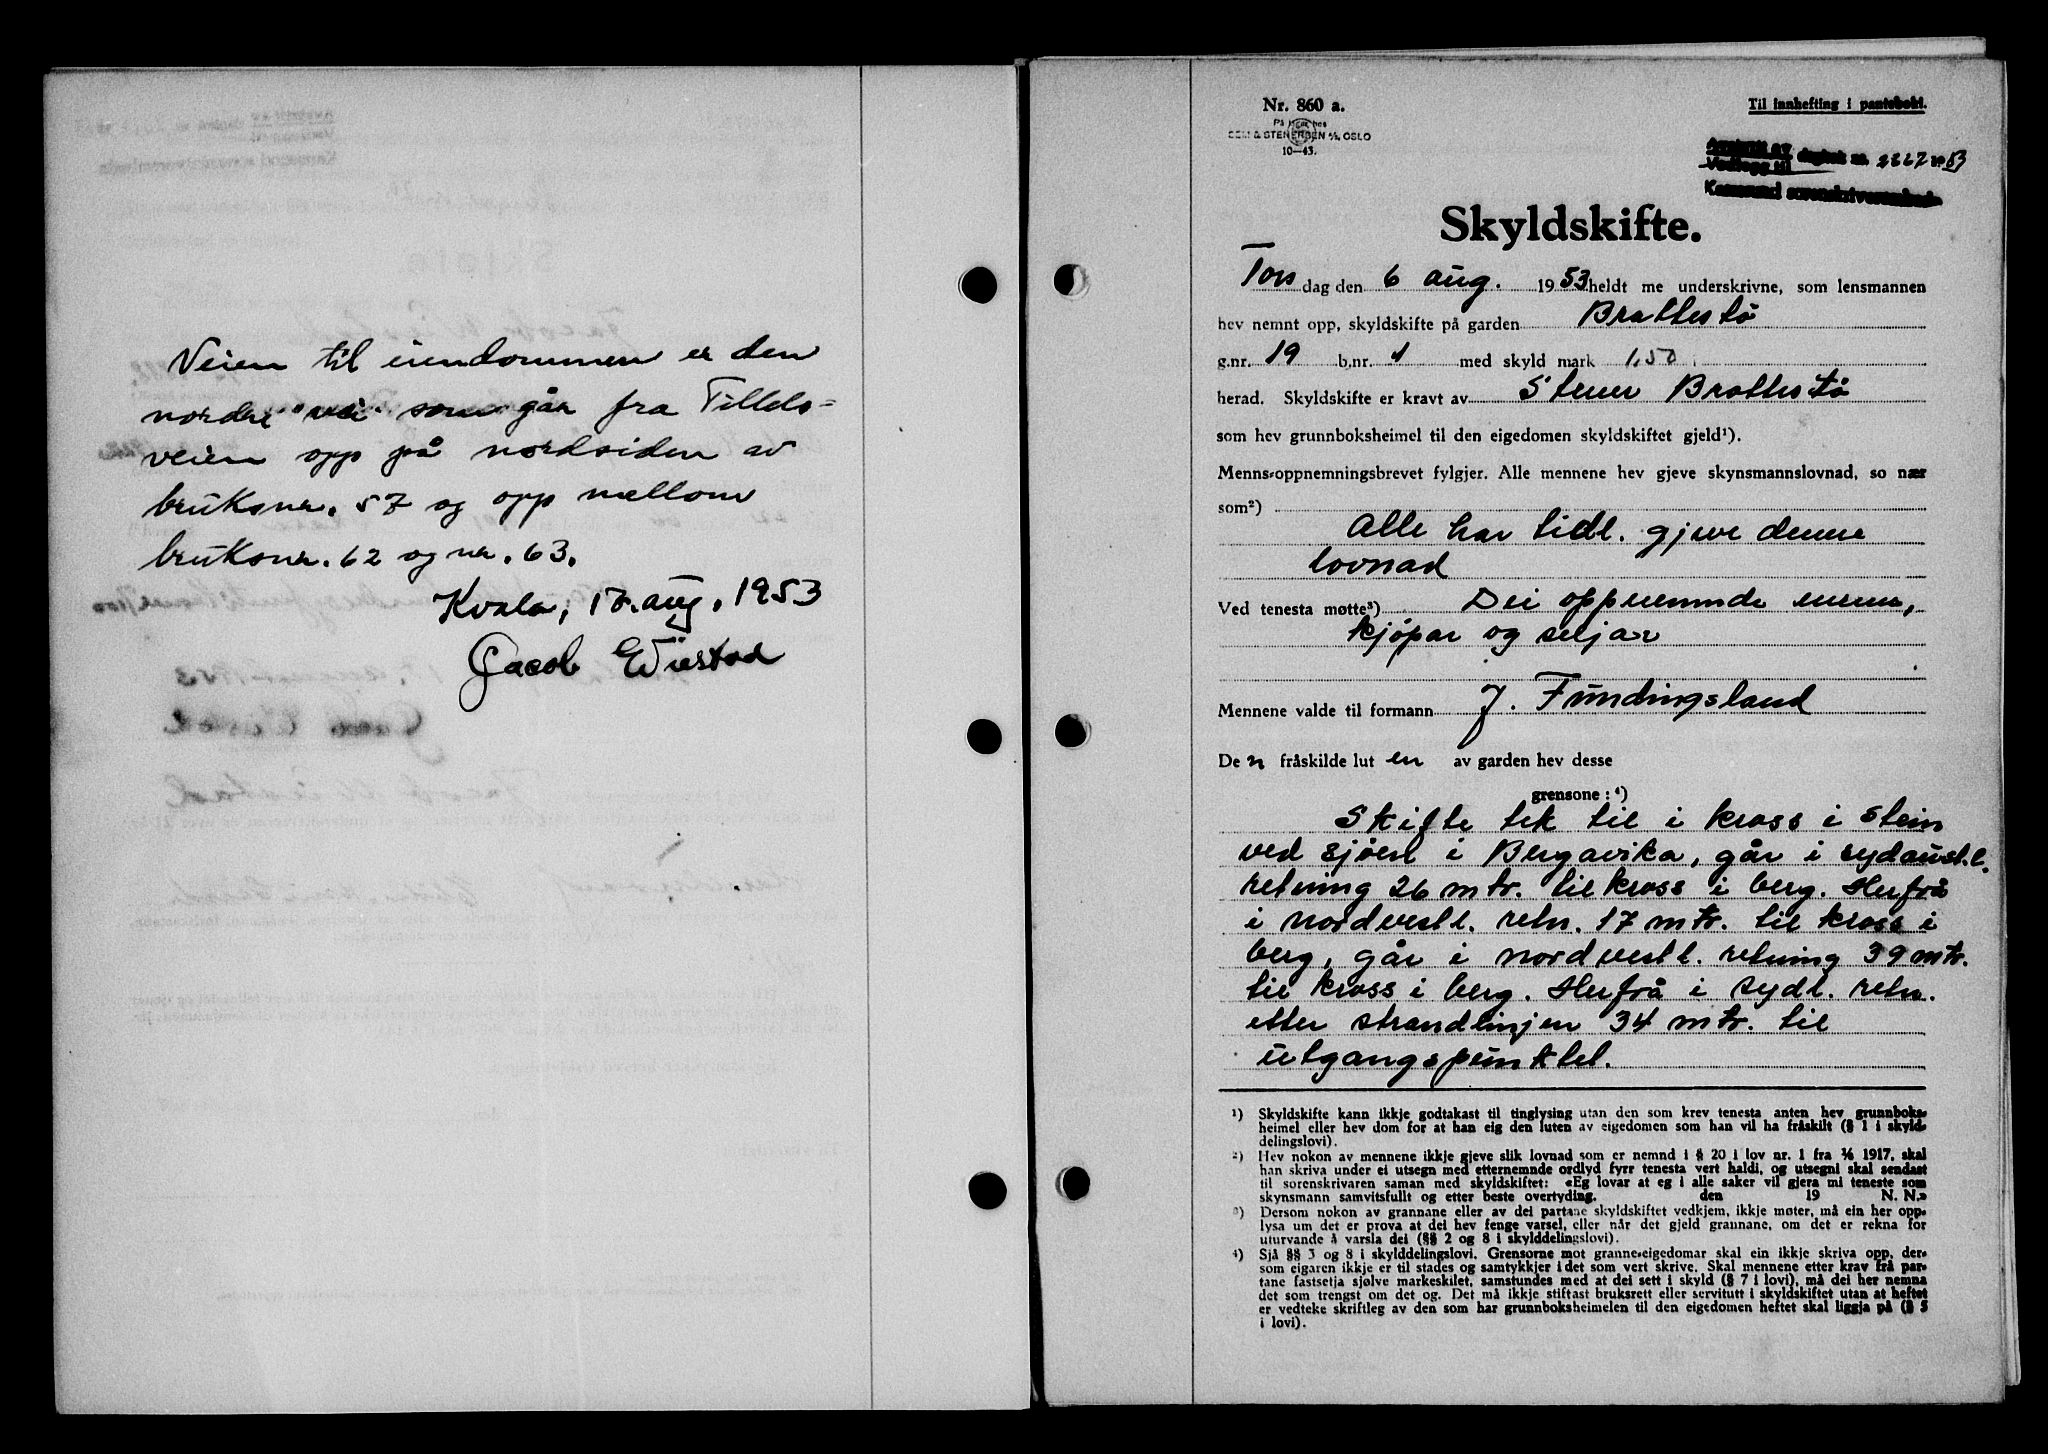 Veien til eiendommen er den
nordre "vei" som går fra Tillels-
veien opp på nordsiden av
bruksnr. 57 og opp mellom
bruksnr. 62 og nr. 63.
Kvala, 17. aug. 1953
Jacob Wiestad
Nr. 860 a.
På lager hos
SEM & STENERSEN A/S OSLO
10—43.
Til innhefting i pantebokt.
Avskrift av
Vedlegg til dagbok nr. 2227 1953
Karmsund sorenskriverembed
Skyldskifte.
Tors dag den 6 aug. 1953 heldt me underskrivne, som lensmannen
hev nemnt opp, skyldskifte på garden Brattestö
g.nr. 19 b.nr. 1 med skyld mark 1,50
herad. Skyldskifte er kravt av Stener Brattestö
som hev grunnboksheimel til den eigedomen skyldskiftet gjeld¹).
Menns-oppnemningsbrevet fylgjer. Alle mennene hev gjeve skynsmannslovnad, so nær
som²)
Alle har tidl. gjeve denne
lovnad
Ved tenesta møtte³) Dei oppnemnde menn,
kjöpar og seljar
Mennene valde til formann J. Fundingsland
De n fråskilde lut en av garden hev desse
grensone: ⁴)
Skifte tek til i kross i stein
ved sjöen i Bergavika, går i sydaustl.
retning 26 mtr. til kross i berg. Herfrå
i nordvestl. retn. 17 mtr. til kross i
berg, går i nordvestl. retning 39 mtr.
til kross i berg. Herfrå i sydl. retn.
etter strandlinjen 34 mtr. til
utgangspunktet.
¹) Skyldskifte kann ikkje godtakast til tinglysing utan den som krev tenesta anten hev grunnboks-
heimel eller hev dom for at han eig den luten av eigedomen som han vil ha fråskilt (§ 1 i skyld-
delingslovi).
²) Hev nokon av mennene ikkje gjeve slik lovnad som er nemnd i § 20 i lov nr. 1 fra ¹/₆ 1917, skal
han skriva under ei utsegn med etternemnde ordlyd fyrr tenesta vert haldi, og utsegni skal sendast
til sorenskrivaren saman med skyldskiftet: «Eg lovar at eg i alle saker vil gjera mi teneste som
skynsmann samvitsfullt og etter beste overtyding. den 19 N. N.»
³) Dersom nokon av grannane eller av dei partane skyldskiftet vedkjem, ikkje møter, må ein her opp-
lysa um det er prova at dei hev fenge varsel, eller når det gjeld grannane, om det er rekna for
uturvande å varsla dei (§§ 2 og 8 i skylddelingslovi).
⁴) Sjå §§ 3 og 8 i skylddelingslovi. Grensorne mot granne-eigedomar skal ein ikkje skriva opp, der-
som eigaren ikkje er til stades og samtykkjer i det som vert skrive. Skal mennene etter krav frå par-
tane fastsetja sjølve markeskilet, samstundes med at dei sett i skyld (§ 7 i lovi), må dei her nemna
det som trengst om det og. Det må ikkje stiftast bruksrett eller servitutt i skyldskiftet utan at heftet
er vedteke skriftleg av den som har grunnboksheimelen til den eigedomen heftet skal liggja på (§ 5
i lovi).